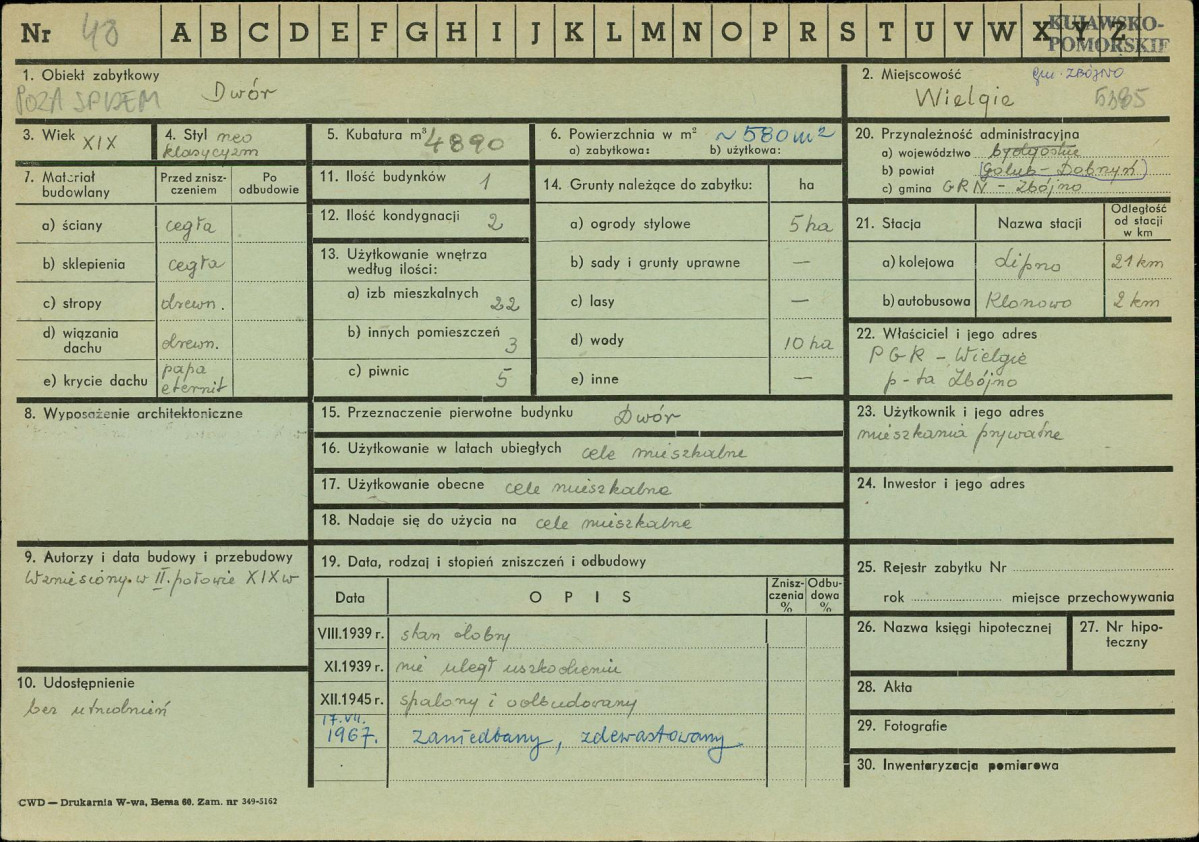 Nr 43 A B C D E F G H I J K L M N O P R S T U V W X Y Z
KUJAWSKO-
POMORSKIE
1. Obiekt zabytkowy
POZA SPISEM Dwór
2. Miejscowość gm. ZBÓJNO
Wielgie
3. Wiek XIX
4. Styl neo
klasycyzm
5. Kubatura m³ 4890
6. Powierzchnia w m² ~580 m²
a) zabytkowa: b) użytkowa:
7. Materiał
budowlany
Przed znisz-
czeniem
Po
odbudowie
a) ściany cegła
b) sklepienia cegła
c) stropy drewn.
d) wiązania
dachu drewn.
e) krycie dachu papa
eternit
8. Wyposażenie architektoniczne
9. Autorzy i data budowy i przebudowy
Wzniesiony w II. połowie XIX w
10. Udostępnienie
bez utrudnień
11. Ilość budynków 1
12. Ilość kondygnacji 2
13. Użytkowanie wnętrza
według ilości:
a) izb mieszkalnych 22
b) innych pomieszczeń 3
c) piwnic 5
14. Grunty należące do zabytku: ha
a) ogrody stylowe 5 ha
b) sady i grunty uprawne —
c) lasy —
d) wody 10 ha
e) inne —
15. Przeznaczenie pierwotne budynku Dwór
16. Użytkowanie w latach ubiegłych cele mieszkalne
17. Użytkowanie obecne cele mieszkalne
18. Nadaje się do użycia na cele mieszkalne
19. Data, rodzaj i stopień zniszczeń i odbudowy
Data O P I S Znisz-
czenia
% Odbu-
dowa
%
VIII.1939 r. stan dobry
XI.1939 r. nie uległ uszkodzeniu
XII.1945 r. spalony i odbudowany
17.VII.
1967. zaniedbany, zdewastowany
20. Przynależność administracyjna
a) województwo bydgoskie
b) powiat (Golub-Dobrzyń)
c) gmina GRN - Zbójno
21. Stacja Nazwa stacji Odległość
od stacji
w km
a) kolejowa Lipno 21 km
b) autobusowa Klonowo 2 km
22. Właściciel i jego adres
PGR - Wielgie
p-ta Zbójno
23. Użytkownik i jego adres
mieszkania prywatne
24. Inwestor i jego adres
25. Rejestr zabytku Nr
rok miejsce przechowywania
26. Nazwa księgi hipotecznej
27. Nr hipo-
teczny
28. Akta
29. Fotografie
30. Inwentaryzacja pomiarowa
CWD — Drukarnia W-wa, Bema 60. Zam. nr 349-5162